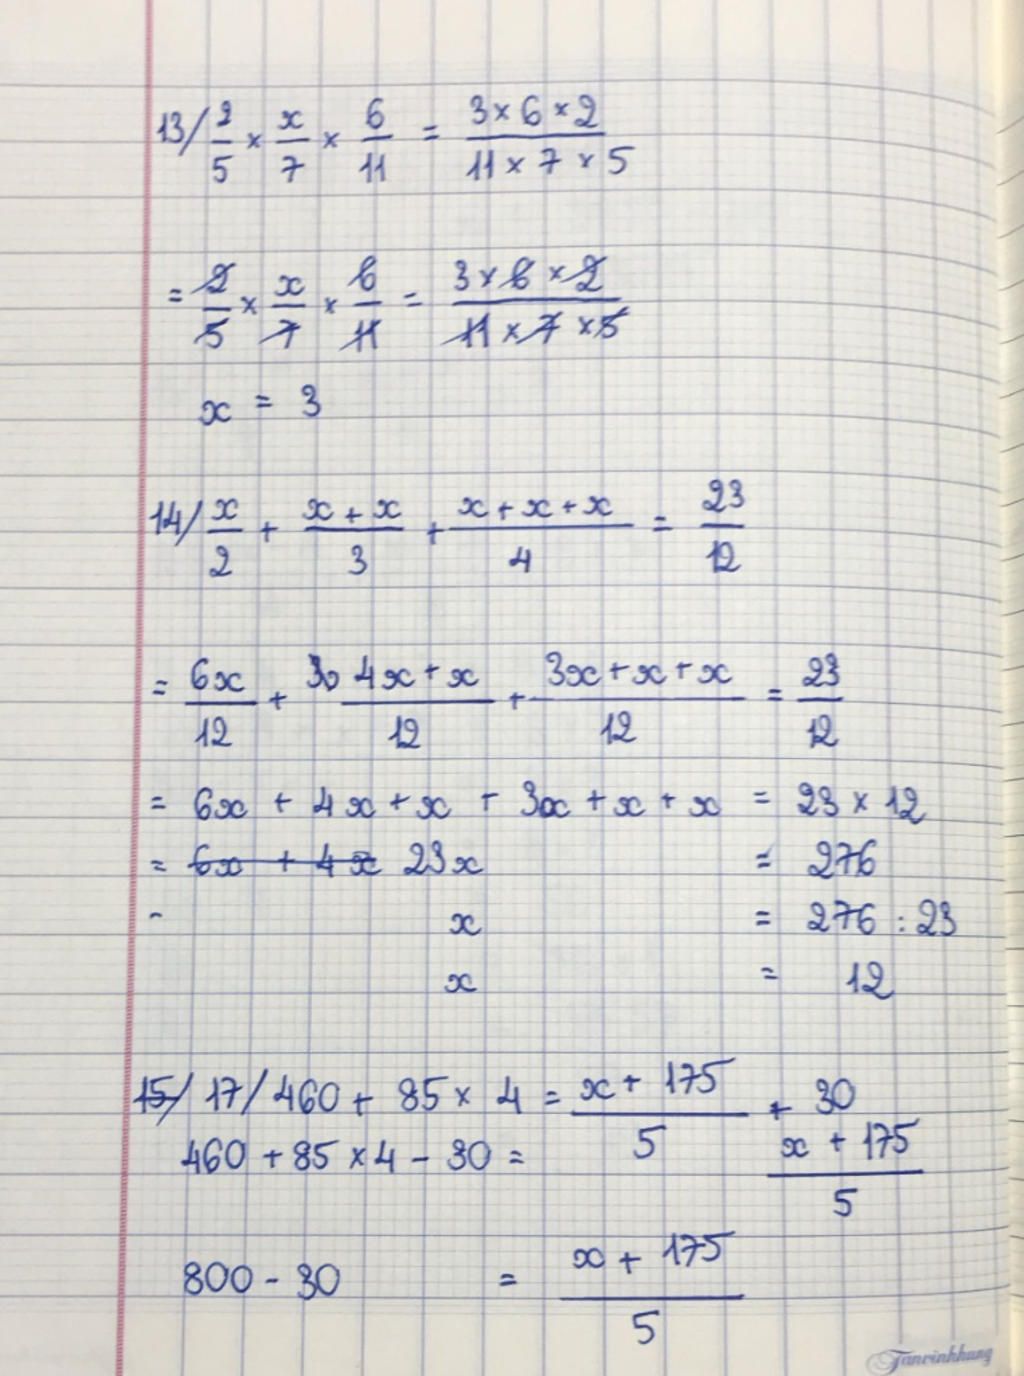 13/ 2/5 × x/7 × 6/11 = (3 × 6 × 2)/(11 × 7 × 5)
= 2/5 × x/7 × 6/11 = (3 × 6 × 2)/(11 × 7 × 5)
x = 3
14/ x/2 + (x + x)/3 + (x + x + x)/4 = 23/12
= 6x/12 + (4x + x)/12 + (3x + x + x)/12 = 23/12
= 6x + 4x + x + 3x + x + x = 23 × 12
= 6x + 4x 23x = 276
- x = 276 : 23
x = 12
15/ 17/ 460 + 85 × 4 = (x + 175)/5 + 30
460 + 85 × 4 - 30 = (x + 175)/5
800 - 30 = (x + 175)/5
Tanvinhhung